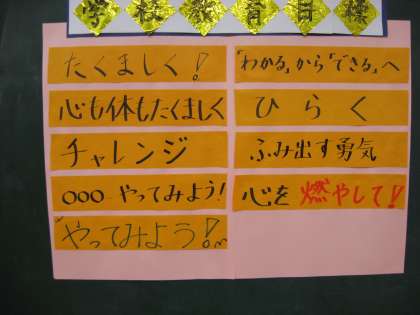 学校教育目標
たくましく!
心も体もたくましく
チャレンジ
○○○ やってみよう!
やってみよう!
「わかる」から「できる」へ
ひらく
ふみ出す勇気
心を燃やして!